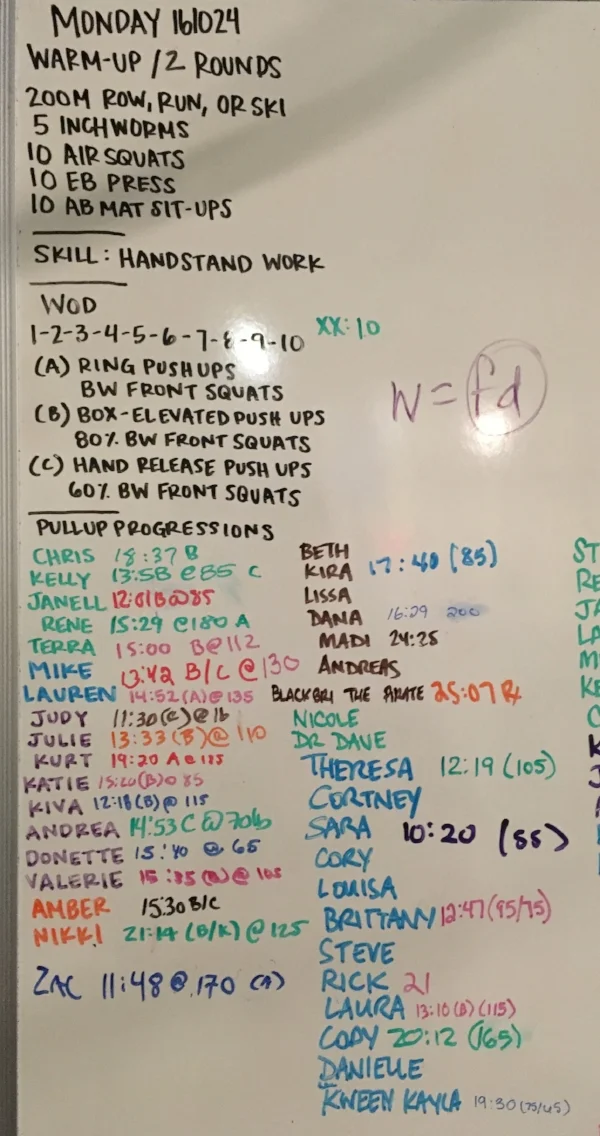 MONDAY 161024
WARM-UP / 2 ROUNDS
200M ROW, RUN, OR SKI
5 INCHWORMS
10 AIR SQUATS
10 EB PRESS
10 AB MAT SIT-UPS
SKILL: HANDSTAND WORK
WOD
1-2-3-4-5-6-7-8-9-10 XX:10
(A) RING PUSHUPS
BW FRONT SQUATS
W = fd
(B) BOX-ELEVATED PUSH UPS
80% BW FRONT SQUATS
(C) HAND RELEASE PUSH UPS
60% BW FRONT SQUATS
PULLUP PROGRESSIONS
CHRIS 18:37 B
KELLY 13:58 @85 C
JANELL 12:01 B @85
RENE 15:29 @180 A
TERRA 15:00 B@112
MIKE 13:42 B/C @130
LAUREN 14:52 (A) @ 135
JUDY 11:30 (C) @
JULIE 13:33 (B) @ 110
KURT 19:20 A @
KATIE (B) @ 85
KIVA 12:18 (B) @ 115
ANDREA 14:53 C @ 70lb
DONETTE 15:40 @ 65
VALERIE @
AMBER 15:30 B/C
NIKKI 21:14 @ 125
ZAC 11:48 @ 170 (A)
BETH
KIRA 17:40 (85)
LISSA
DANA 16:29 200
MADI 24:25
ANDREAS
BLACKBRI THE 25:07 Rx
NICOLE
DR DAVE
THERESA 12:19 (105)
CORTNEY
SARA 10:20 (55)
CORY
LOUISA
BRITTANY 12:47 (95/75)
STEVE
RICK 21
LAURA 13:10 (B) (115)
CODY 20:12 (165)
DANIELLE
KWEEN KAYLA 19:30 (75/45)
ST
RE
JA
LA
M
KE
C
K
J